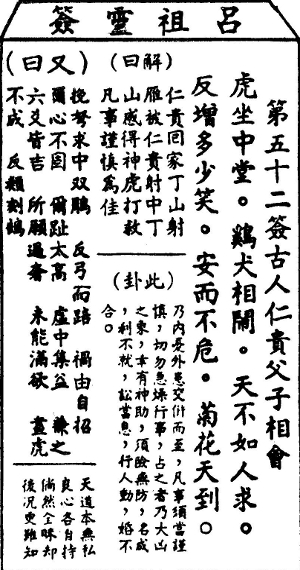 呂祖靈簽
第五十二簽古人仁貴父子相會
虎坐中堂。鷄犬相鬧。天不如人求。
反增多少笑。安而不危。菊花天到。
(解曰)
仁貴回家丁山射
雁被仁貴射中丁
山感得神虎打救
凡事謹慎為佳
(此卦)
乃內憂外患交併而至，凡事須當謹
慎，切勿急燥行事，占之者乃大凶
之象，幸有神助，須險無防，名成
，利不就，訟當息，行人動，婚不
合。
(又曰)
挽弩求中双鵰 反弓而踣 禍由自招
爾心不固 爾趾太高 虛中集益 兼之
六爻皆吉 所願過奢 未能滿欲 畫虎
不成 反類刻鵠
天道本無私
良心各自持
倘然全昧却
後況更難知